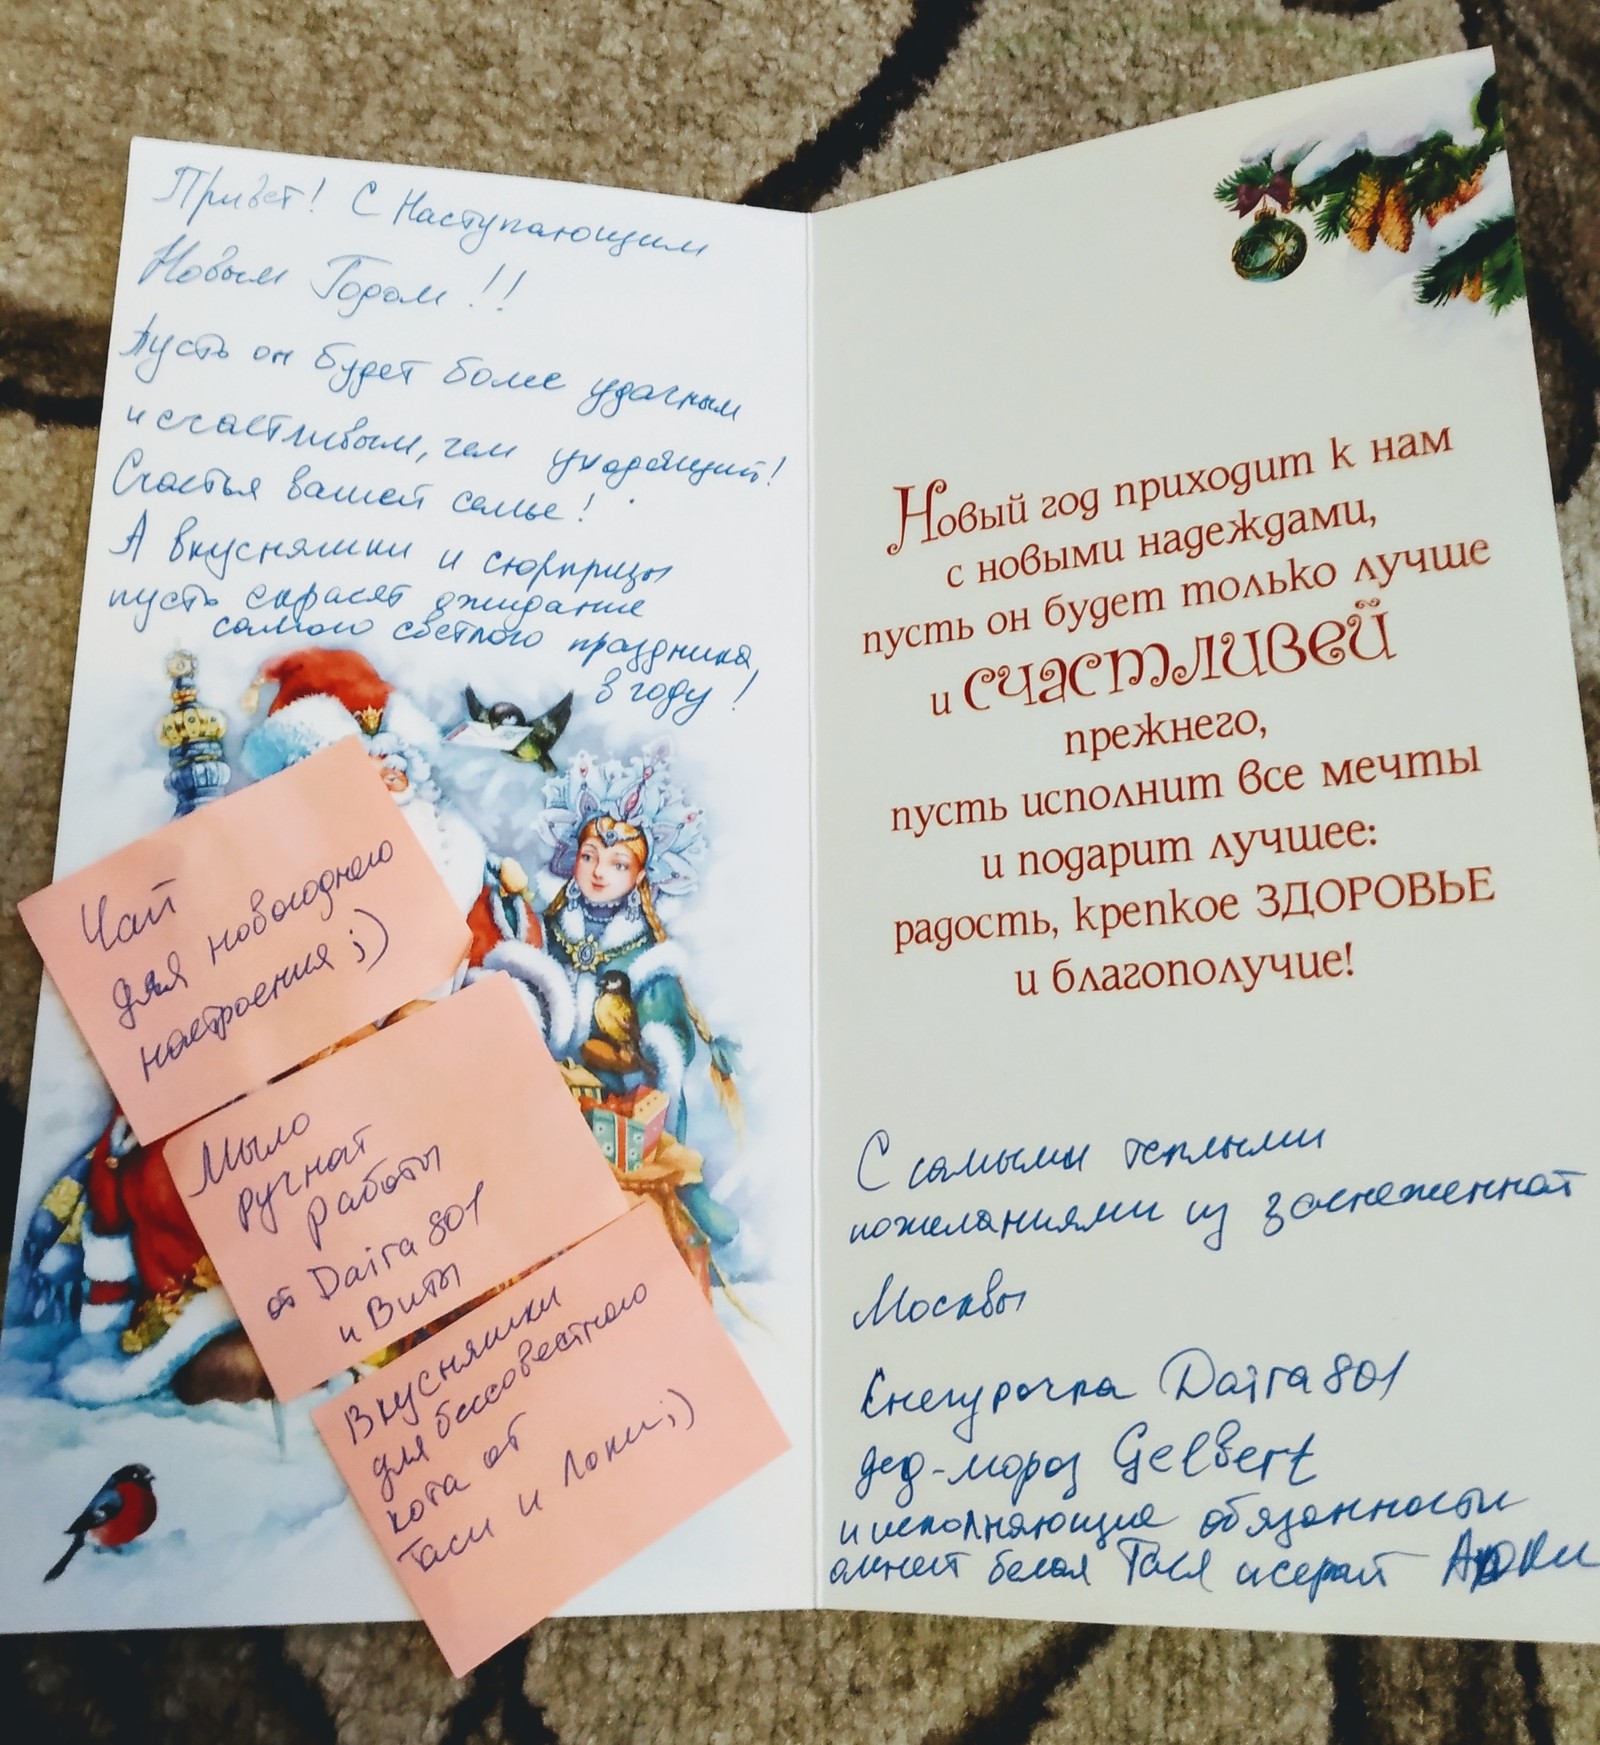 Привет! С Наступающим
Новым Годом!!
Пусть он будет более удачным
и счастливым, чем уходящий!
Счастья вашей семье!
А вкусняшки и сюрпризы
пусть скрасят ожидание
самого светлого праздника,
в году!
Чай
для новогоднего
настроения ;)
Мыло
ручной
работы
от Daira801
и Виты
Вкусняшки
для бессовестного
кота от
Таси и Локи ;)
Новый год приходит к нам
с новыми надеждами,
пусть он будет только лучше
и счастливей
прежнего,
пусть исполнит все мечты
и подарит лучшее:
радость, крепкое ЗДОРОВЬЕ
и благополучие!
С самыми теплыми
пожеланиями из заснеженной
Москвы
Снегурочка Daira801
дед-мороз Gelbert
и исполняющие обязанности
оленей белая Тася и серый